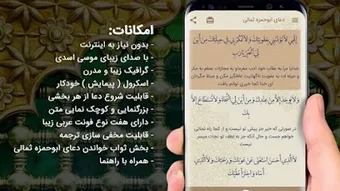 امکانات:
- بدون نیاز به اینترنت
- با صدای زیبای موسی اسدی
- گرافیک زیبا و مدرن
- اسکرول ( پیمایش ) خودکار
- قابلیت شروع دعا از هر بخشی
- بزرگنمایی و کوچک نمایی متن
- دارای هفت نوع فونت عربی زیبا
- قابلیت مخفی سازی ترجمه
- بخش ثواب خواندن دعای ابوحمزه ثمالی
- همراه با راهنما
دعای ابوحمزه ثمالی
إِلٰهِي لَا تُؤَدِّبْنِي بِعُقُوبَتِكَ وَلَا تَمْكُرْ بِي فِي حِيلَتِكَ مِنْ أَيْنَ
لِيَ الْخَيْرُ يَا رَبِّ
وَلَا يُوجَدُ إِلَّا مِنْ عِنْدِكَ وَمِنْ أَيْنَ لِيَ النَّجَاةُ وَلَا تُسْتَطَاعُ إِلَّا
بِكَ
لَا الَّذِي أَحْسَنَ اسْتَغْنَىٰ عَنْ عَوْنِكَ وَرَحْمَتِكَ وَلَا الَّذِي
أَسَاءَ وَاجْتَرَأَ عَلَيْكَ